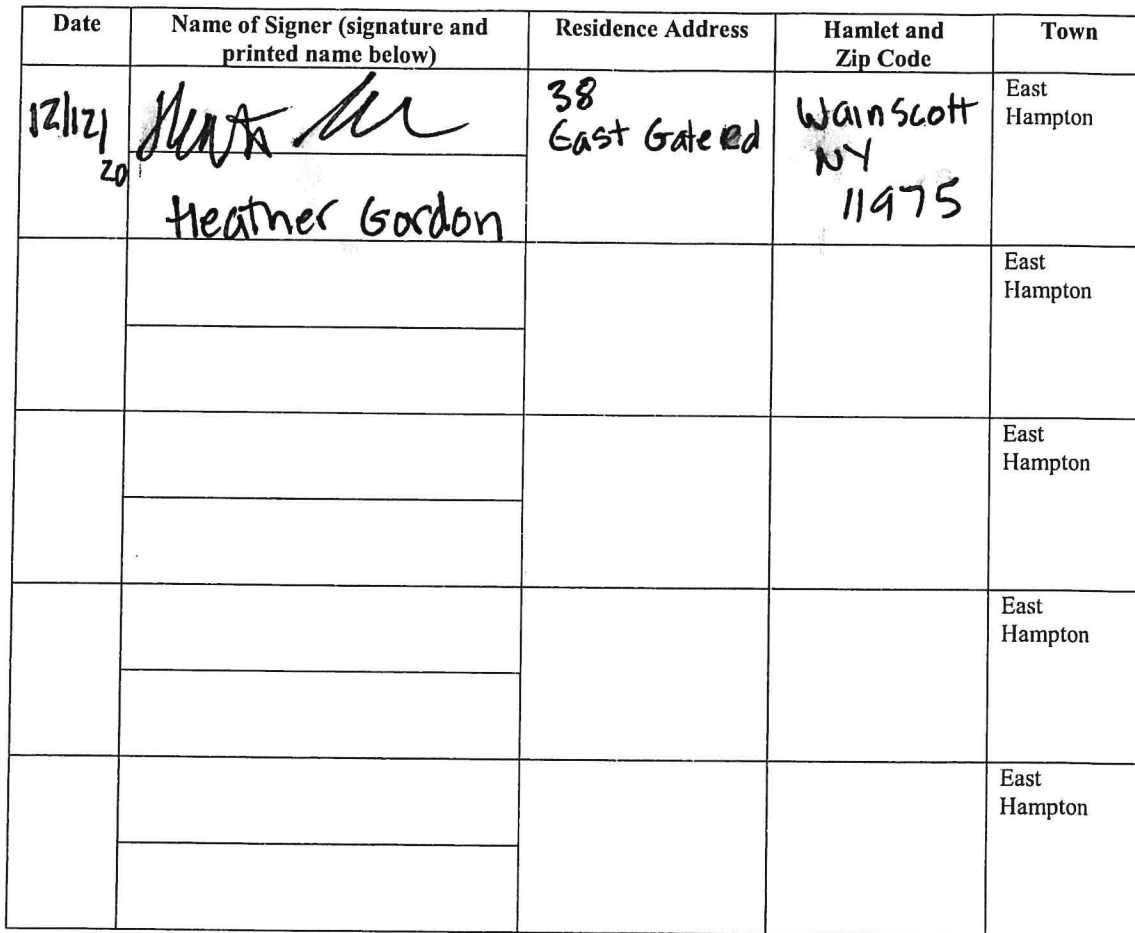 Date
Name of Signer (signature and
printed name below)
Residence Address
Hamlet and
Zip Code
Town
12/12/
20
Heather Gordon
38
East Gate Rd
Wainscott
NY
11975
East
Hampton
East
Hampton
East
Hampton
East
Hampton
East
Hampton